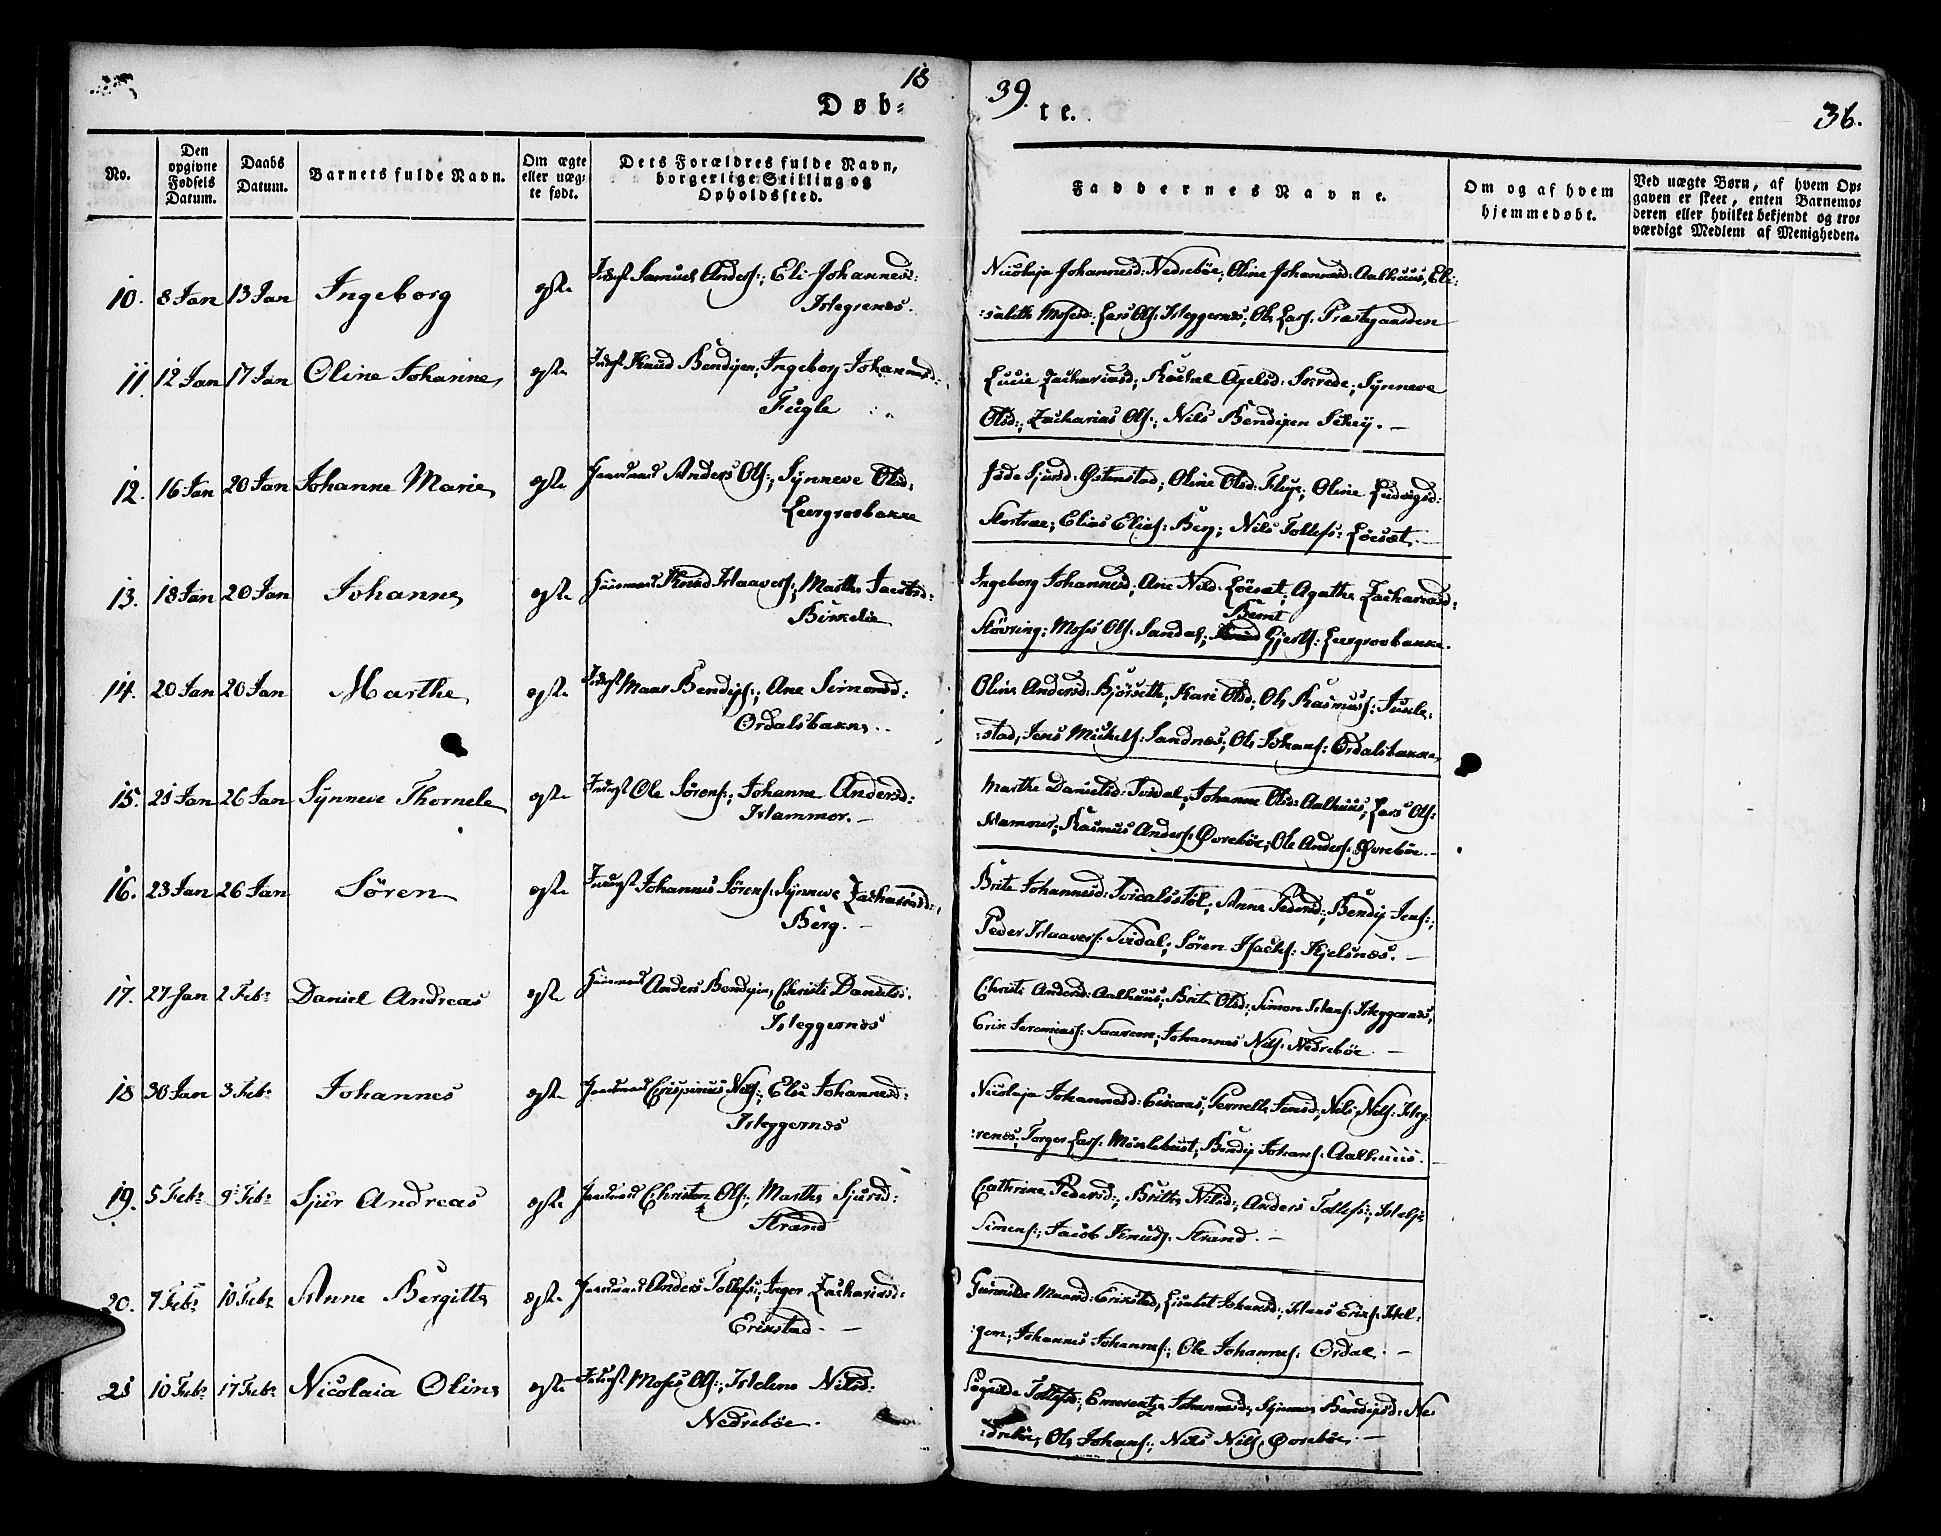 18
39.
36.
Døb-
te.
No.
Den opgivne Fødsels Datum.
Daabs Datum.
Barnets fulde Navn.
Om ægte eller uæg-te født.
Dets Forældres fulde Navn, borgerlige Stilling og Opholdssted.
Faddernes Navne.
Om og af hvem hjemmedøbt.
Ved uægte Børn, af hvem Op-gaven er skeet, enten Barnemo-deren eller hvilket bekjendt og tro-værdigt Medlem af Menigheden.
10. 8 Jan 13 Jan Ingeborg egte Samuel Anders:; Eli Johannesd:
Heggrenes.
Nicolaja Johannesd: Nedrebøe; Oline Johannesd: Aalhuus, Eli-
:sabeth Mosesd: Lars Ols: Heggernes; Ole Lars: Præstegaarden
11. 12 Jan 17 Jan Oline Johanne egte Knud Bendixen; Ingeborg Johannesd:
Fugle
Lucie Zachariasd; Rachel Axelsd: Skrede; Synneve
Olsd:; Zacharias Ols:; Nils Bendixen
12. 16 Jan 20 Jan Johanne Marie egte Gaardmand Anders Ols:; Synneve Olsd:
Leergroobakke
Sjursd: Østenstad; Oline Olsd: Flye; Oline Ludvigsd:
Elias Elias: Berg; Nils Tollefs: Løeset.
13. 18 Jan 20 Jan Johanne egte Huusmand Knud Haavers:; Marthe Jacobsd:
Birkelie
Ingeborg Johannesd; Ane Nilsd: Løeset; Agathe Zachariasd:
Bernt
Støvring; Moses Ols: Sandal; Gjerts: Leergroobakke.
14. 20 Jan 20 Jan Marthe egte Maas Bendix:; Ane Simonsd:
Ordalsbakke
Oline Andersd: Bjørseth; Kari Olsd: Ole Rasmus:
:stad; Jens Michels: Sandnes; Ole Johans: Ordalsbakke
15. 21 Jan 26 Jan Synneve Thornele egte Ole Sørens:; Johanne Andersd:
Hammer.
Marthe Danielsd: Svidal; Johanne Olsd: Aalhuus; Lars Ols:
Hammer; Rasmus Anders: Øvrebøe; Ole Anders: Øvrebøe.
16. 23 Jan 26 Jan Søren egte Johannes Sørens: Synneve Zachariasd:
Berg.
Brite Johannesd: Svidalsstøl; Anne Pedersd:; Bendix Jens:;
Peder Haavers: Svidal; Søren Isachs: Kjelsnes.
17. 27 Jan 2 Feb: Daniel Andreas egte Huusmand Anders Bendixen, Christi Danielsd:
Heggernes
Christi Andersd: Aalhuus; Brite Olsd:; Simon Hans: Heggernes;
Erik Jeremias: Saarem; Johannes Nils: Nedrebøe
18 30 Jan 3 Feb: Johannes egte Gaardmand Crispinus Nils:; Else Johannesd:
Heggernes
Nicolaja Johannesd: Eikaas; Pernelle Jensd; Nils Nils: Heg-
:renes; Torger Lars: Møklebust; Bendix Johans: Aalhuus.
19. 5 Feb: 9 Feb: Sjur Andreas egte Gaardmand Christen Ols:; Marthe Sjursd:
Strand
Cathrine Pedersd:; Brithe Nilsd; Anders Tollefs:; Helje
Simens:; Jacob Knuds: Strand.
20. 7 Feb: 10 Feb: Anne Bergitte egte Gaardmand Anders Tollefs:; Inger Zachariasd:
Erikstad.
Gunnilde Maasd: Erikstad, Lisabet Johansd:, Claus Eriks: Hel-
:gem; Johannes Johannes:; Ole Johannes: Ordal.
21 10 Feb: 17 Feb: Nicolaia Oline egte Moses Ols:; Helene Nilsd:
Nedrebøe.
Tollefsd:; Emerentze Johannesd; Synneve Bendixsd: Ne-
:drebøe; Ole Johans:; Nils Nils: Øvrebøe.